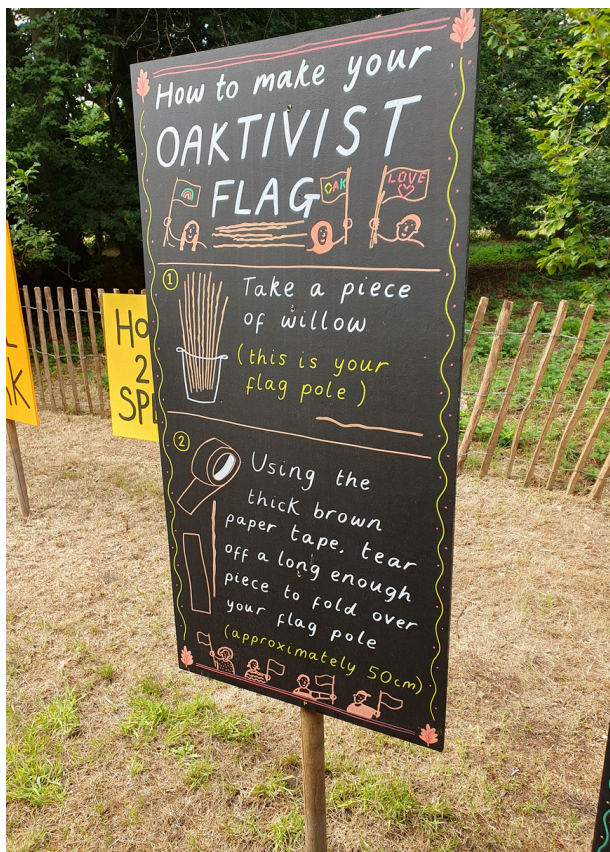 How to make your
OAKTIVIST
FLAG
OAK
LOVE
1
Take a piece
of willow
(this is your
flag pole)
2
Using the
thick brown
paper tape, tear
off a long enough
piece to fold over
your flag pole
(approximately 50cm)
HO
2
SP
K